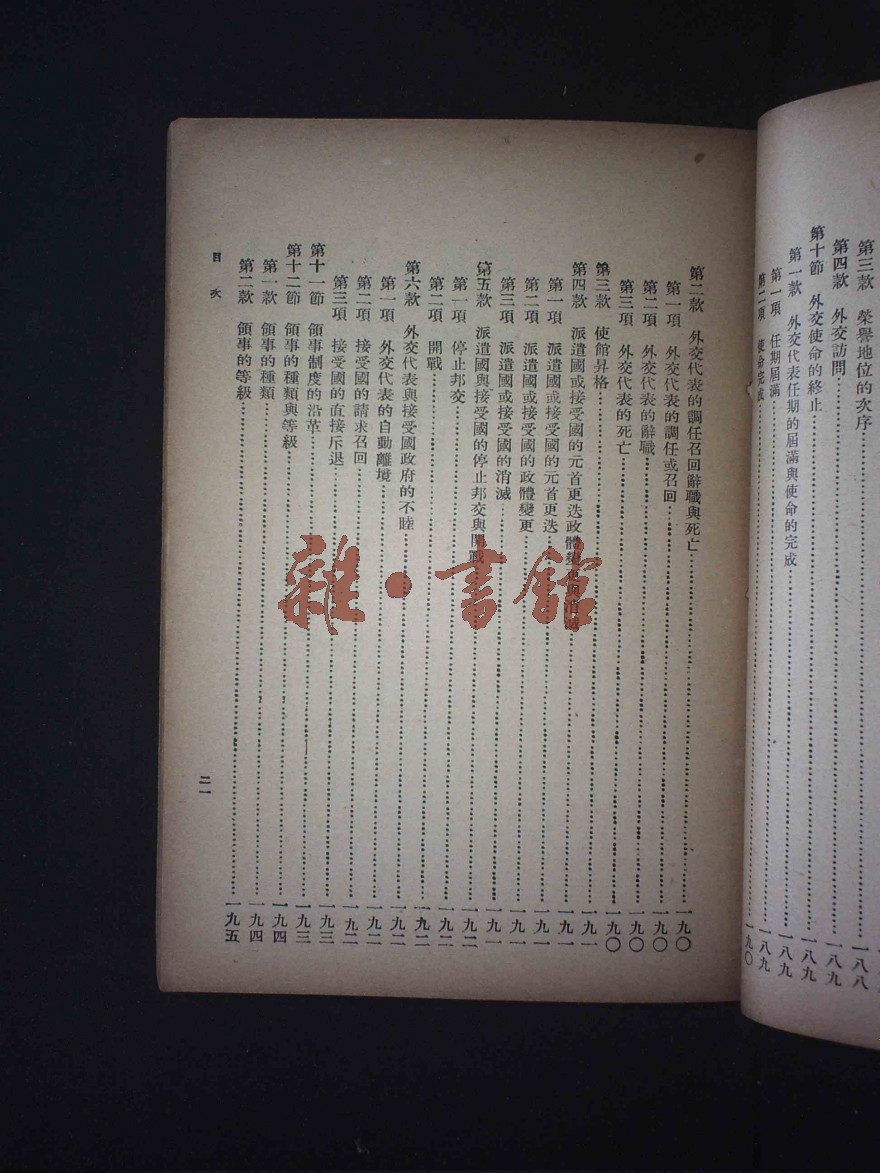 第三款　榮譽地位的次序……一八八
第四款　外交訪問……一八八
第十節　外交使命的終止……一八九
第一款　外交代表任期的屆滿與使命的完成……一八九
第一項　任期屆滿……一八九
第二項　使命完成……一九〇
第二款　外交代表的調任召回辭職與死亡……一九〇
第一項　外交代表的調任或召回……一九〇
第二項　外交代表的辭職……一九〇
第三項　外交代表的死亡……一九〇
第三款　使館昇格……一九一
第四款　派遣國或接受國的元首更迭政體變更與消滅……一九一
第一項　派遣國或接受國的元首更迭……一九一
第二項　派遣國或接受國的政體變更……一九一
第三項　派遣國或接受國的消滅……一九一
第五款　派遣國與接受國的停止邦交與開戰……一九二
第一項　停止邦交……一九二
第二項　開戰……一九二
第六款　外交代表與接受國政府的不睦……一九二
第一項　外交代表的自動離境……一九二
第二項　接受國的請求召回……一九二
第三項　接受國的直接斥退……一九三
第十一節　領事制度的沿革……一九三
第十二節　領事的種類與等級……一九四
第一款　領事的種類……一九四
第二款　領事的等級……一九五
目次
二一
雜·書館